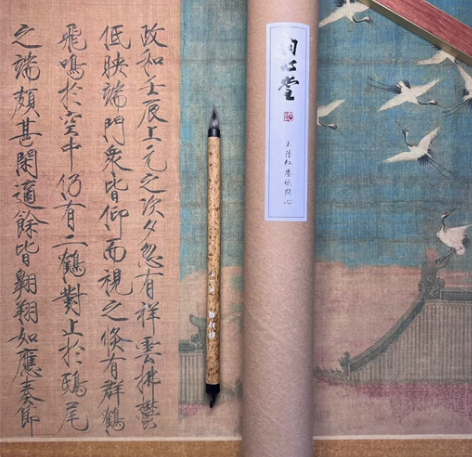 政和壬辰上元之次夕忽有祥雲拂鬱
低映端門衆皆仰而視之倏有群鶴
飛鳴於空中仍有二鶴對止於鴟尾
之端頗甚閑適餘皆翱翔如應奏節
问心堂